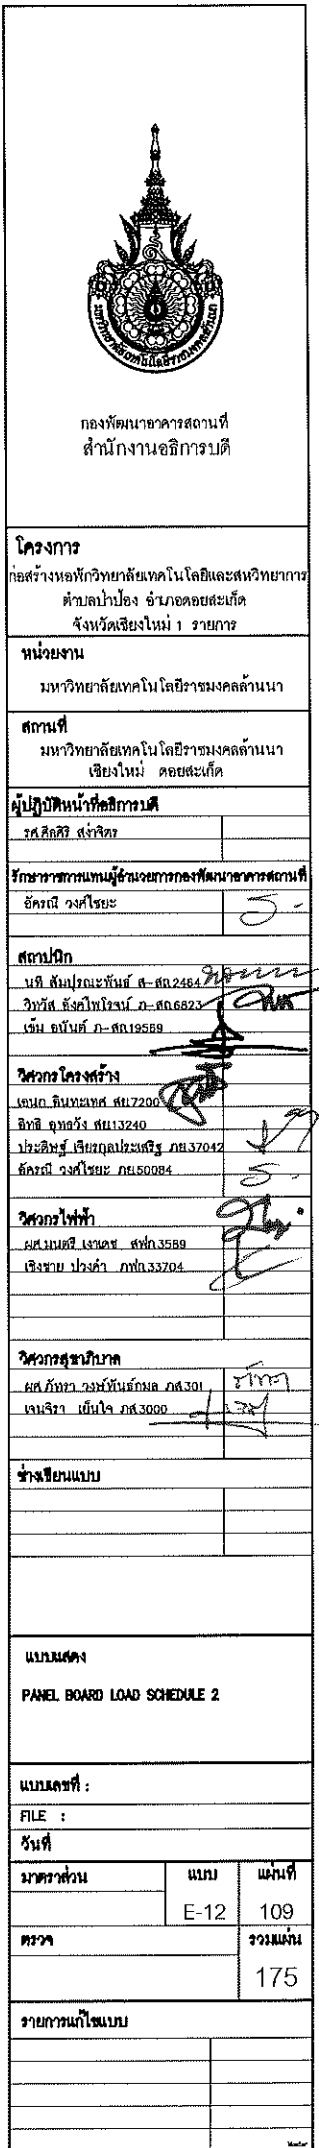 มหาวิทยาลัยเทคโนโลยีราชมงคลล้านนา
กองพัฒนาอาคารสถานที่
สำนักงานอธิการบดี
โครงการ
ก่อสร้างหอพักวิทยาลัยเทคโนโลยีและสหวิทยาการ
ตำบลป่าป้อง อำเภอดอยสะเก็ด
จังหวัดเชียงใหม่ 1 รายการ
หน่วยงาน
มหาวิทยาลัยเทคโนโลยีราชมงคลล้านนา
สถานที่
มหาวิทยาลัยเทคโนโลยีราชมงคลล้านนา
เชียงใหม่ ดอยสะเก็ด
ผู้ปฏิบัติหน้าที่อธิการบดี
รศ.ศีลศิริ สง่าจิตร
รักษาราชการแทนผู้อำนวยการกองพัฒนาอาคารสถานที่
อัครณี วงศ์ไชยะ
สถาปนิก
นที สัมปุรณะพันธ์ ส-สถ.2464
วิทวัส ยังคไพโรจน์ ภ-สถ.6823
เข้ม อนันต์ ภ-สถ.19569
วิศวกรโครงสร้าง
เอนก ชินทะเทศ สย.7200
อิทธิ อุทธวัง สย.13240
ประดิษฐ์ เจียรกุลประเสริฐ ภย.37042
อัครณี วงศ์ไชยะ ภย.50084
วิศวกรไฟฟ้า
ผศ.มนตรี เงาเดช สฟก.3589
เชิงชาย ปวงคำ ภฟก.33704
วิศวกรสุขาภิบาล
ผศ.ภัทรา วงษ์พันธ์กมล ภส.301
เจนจิรา เย็นใจ ภส.3000
ช่างเขียนแบบ
แบบแสดง
PANEL BOARD LOAD SCHEDULE 2
แบบเลขที่ :
FILE :
วันที่
มาตราส่วน แบบ แผ่นที่
E-12 109
ตรวจ รวมแผ่น
175
รายการแก้ไขแบบ